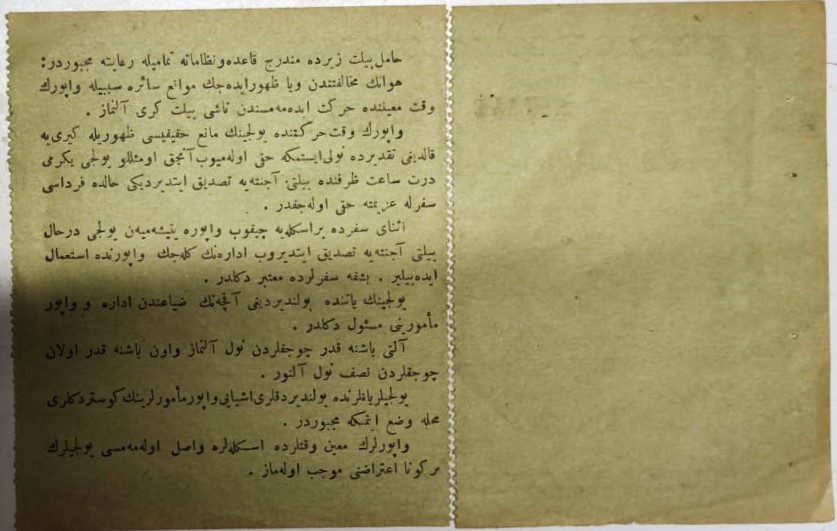 حامل بیلت زیرده مندرج قاعده و نظاماته تمامیله رعایته مجبوردر :
هوانك مخالفتندن ویا ظهور ایده جك موانع سائره سببیله واپورك
وقت معیننده حرکت ایده مه مسندن ناشی بیلت کری آلنماز .
واپورك وقت حرکتنده یولجینك مانع حقیقیسی ظهوریله کیری یه
قالدیغی تقدیرده نولی ایستمکه حقی اوله میوب آنجق او مثللو یولجی یکرمی
درت ساعت ظرفنده بیلتی آجنته یه تصدیق ایتدیردیکی حالده فرداسی
سفرله عزیمته حقی اوله جقدر .
اثنای سفرده بر اسکله یه چیقوب واپوره یتیشه میه ن یولجی درحال
بیلتی آجنته یه تصدیق ایتدیروب اداره نك کله جك واپورنده استعمال
ایده بیلیر . بشقه سفرلرده معتبر دکلدر .
یولجینك یاننده بولندیردیغی آقچه نك ضیاعندن اداره و واپور
مأمورینی مسئول دکلدر .
آلتی یاشنه قدر چوجقلردن نول آلنماز واون یاشنه قدر اولان
چوجقلردن نصف نول آلنور .
یولجیلر یانلرنده بولندیردقلری اشیایی واپور مأمورلرینك کوستردکلری
محله وضع ایتمکه مجبوردر .
واپورلرك معین وقتلرده اسکله لره واصل اوله مه مسی یولجیلرك
برکونا اعتراضنی موجب اوله ماز .